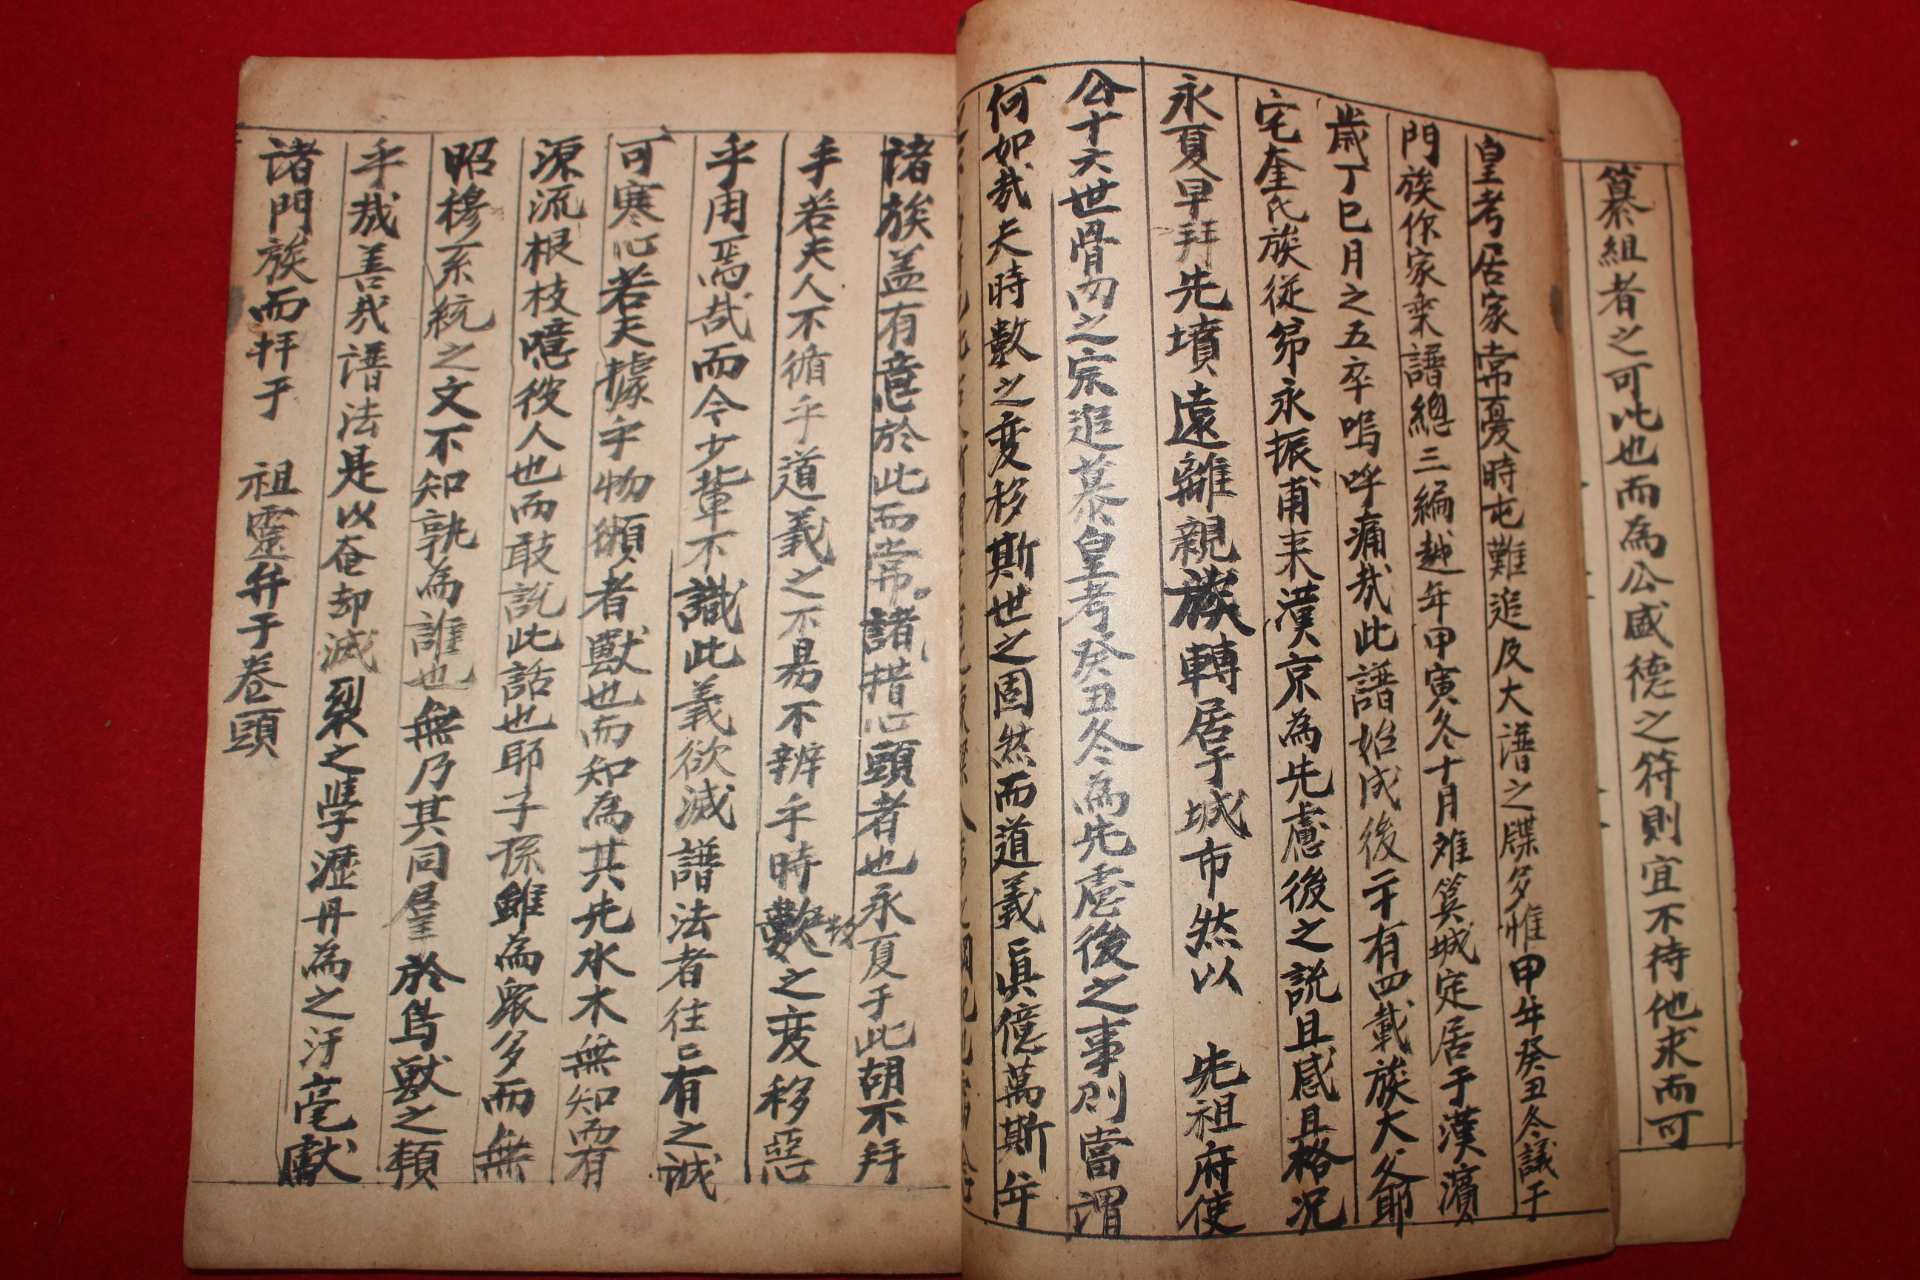 纂組者之可比也而為公盛德之符則宜不待他求而可
皇考居家常憂時屯難追及大譜之牒多惟甲年癸丑冬議于
門族作家乘譜總三編越年甲寅冬十月难箕城定居于漢濱
歲丁巳月之五卒嗚呼痛哉此譜始成後二十有四載族大爺
宅奎氏族從弟永振甫来漢京為先慮後之説且感且格况
永夏早拜先墳遠離親族轉居于城市然以 先祖府使
公十六世骨肉之宗追慕皇考癸丑冬為先慮後之事則當謂
何如哉夫時數之变移斯世之固然而道義眞億萬斯年
諸族盖有意於此而常諸措心頭者也永夏于此胡不拜
手若夫人不循乎道義之不易不辨乎時數之变移惡
乎用焉哉而今少輩不識此義欲滅譜法者往已有之誠
可寒心若夫據乎物獺者獸也而知為其先水木無知而有
源流根枝噫後人也而敢説此話也耶子孫雖為衆多而無
昭穆系統之文不知孰為誰也無乃其同群於鳥獸之類
乎哉善哉譜法是以奄却滅裂之學瀝丹為之汙毫獻
諸門族而拝于 祖靈弁于卷頭